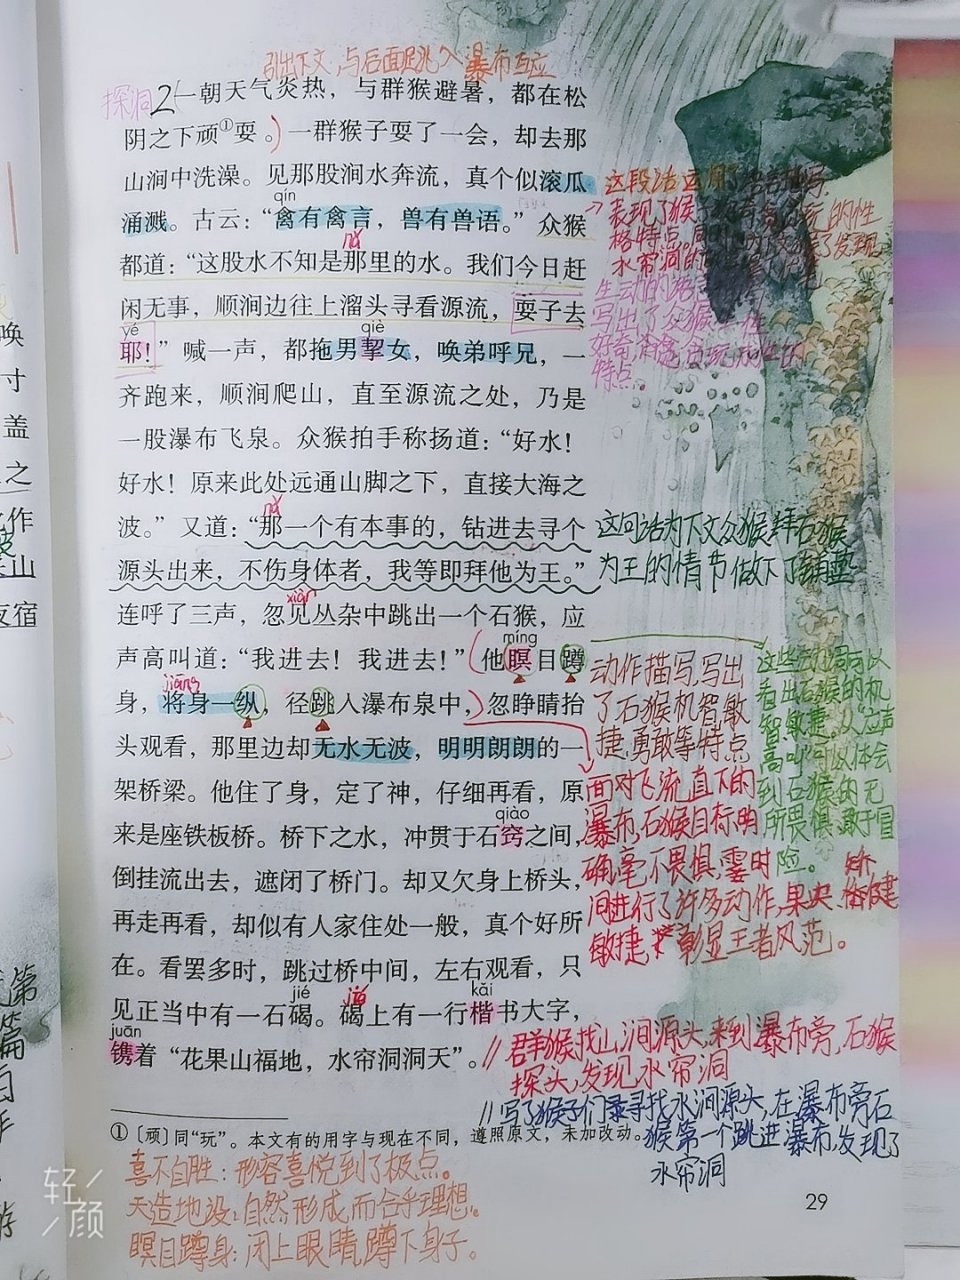 引出下文,与后面跳入瀑布互应
探洞 2 一朝天气炎热，与群猴避暑，都在松
阴之下顽①耍。）一群猴子耍了一会，却去那
山涧中洗澡。见那股涧水奔流，真个似滚瓜
涌溅。古云：“禽有禽言，兽有兽语。”众猴
qín
都道：“这股水不知是那里的水。我们今日赶
nǎ
闲无事，顺涧边往上溜头寻看源流，耍子去
耶！”喊一声，都拖男挈女，唤弟呼兄，一
yé qiè
齐跑来，顺涧爬山，直至源流之处，乃是
一股瀑布飞泉。众猴拍手称扬道：“好水！
好水！原来此处远通山脚之下，直接大海之
波。”又道：“那一个有本事的，钻进去寻个
nǎ
源头出来，不伤身体者，我等即拜他为王。”
连呼了三声，忽见丛杂中跳出一个石猴，应
xiàn
声高叫道：“我进去！我进去！”他瞑目蹲
míng
身，将身一纵，径跳入瀑布泉中，忽睁睛抬
jiāng
头观看，那里边却无水无波，明明朗朗的一
架桥梁。他住了身，定了神，仔细再看，原
来是座铁板桥。桥下之水，冲贯于石窍之间，
qiào
倒挂流出去，遮闭了桥门。却又欠身上桥头，
再走再看，却似有人家住处一般，真个好所
在。看罢多时，跳过桥中间，左右观看，只
见正当中有一石碣。碣上有一行楷书大字，
jié jié kǎi
镌着“花果山福地，水帘洞洞天”。
juān
这段话运用了
表现了猴子 的性
格特点 发现
水帘洞的
生动的语言
写出了众猴
好奇 贪玩 的
特点
这句话为下文众猴拜石猴
为王的情节做下了铺垫
动作描写,写出
了石猴机智敏
捷,勇敢等特点
面对飞流直下的
瀑布,石猴目标明
确毫不畏惧,霎时
间进行了许多动作,果决、矫健
敏捷,彰显王者风范。
这些动词可以
看出石猴的机
智敏捷,从“应声
高叫”可以体会
到石猴的无
所畏惧、敢于冒
险。
//群猴找山涧源头,来到瀑布旁,石猴
探头,发现水帘洞
//写了猴子们寻找水涧源头,在瀑布旁石
猴第一个跳进瀑布,发现了
水帘洞
①〔顽〕同“玩”。本文有的用字与现在不同，遵照原文，未加改动。
喜不自胜：形容喜悦到了极点。
天造地设：自然形成而合乎理想。
瞑目蹲身：闭上眼睛,蹲下身子。
29
轻颜
唤
寸
盖
之
作
山
夜宿
第
篇
白
游